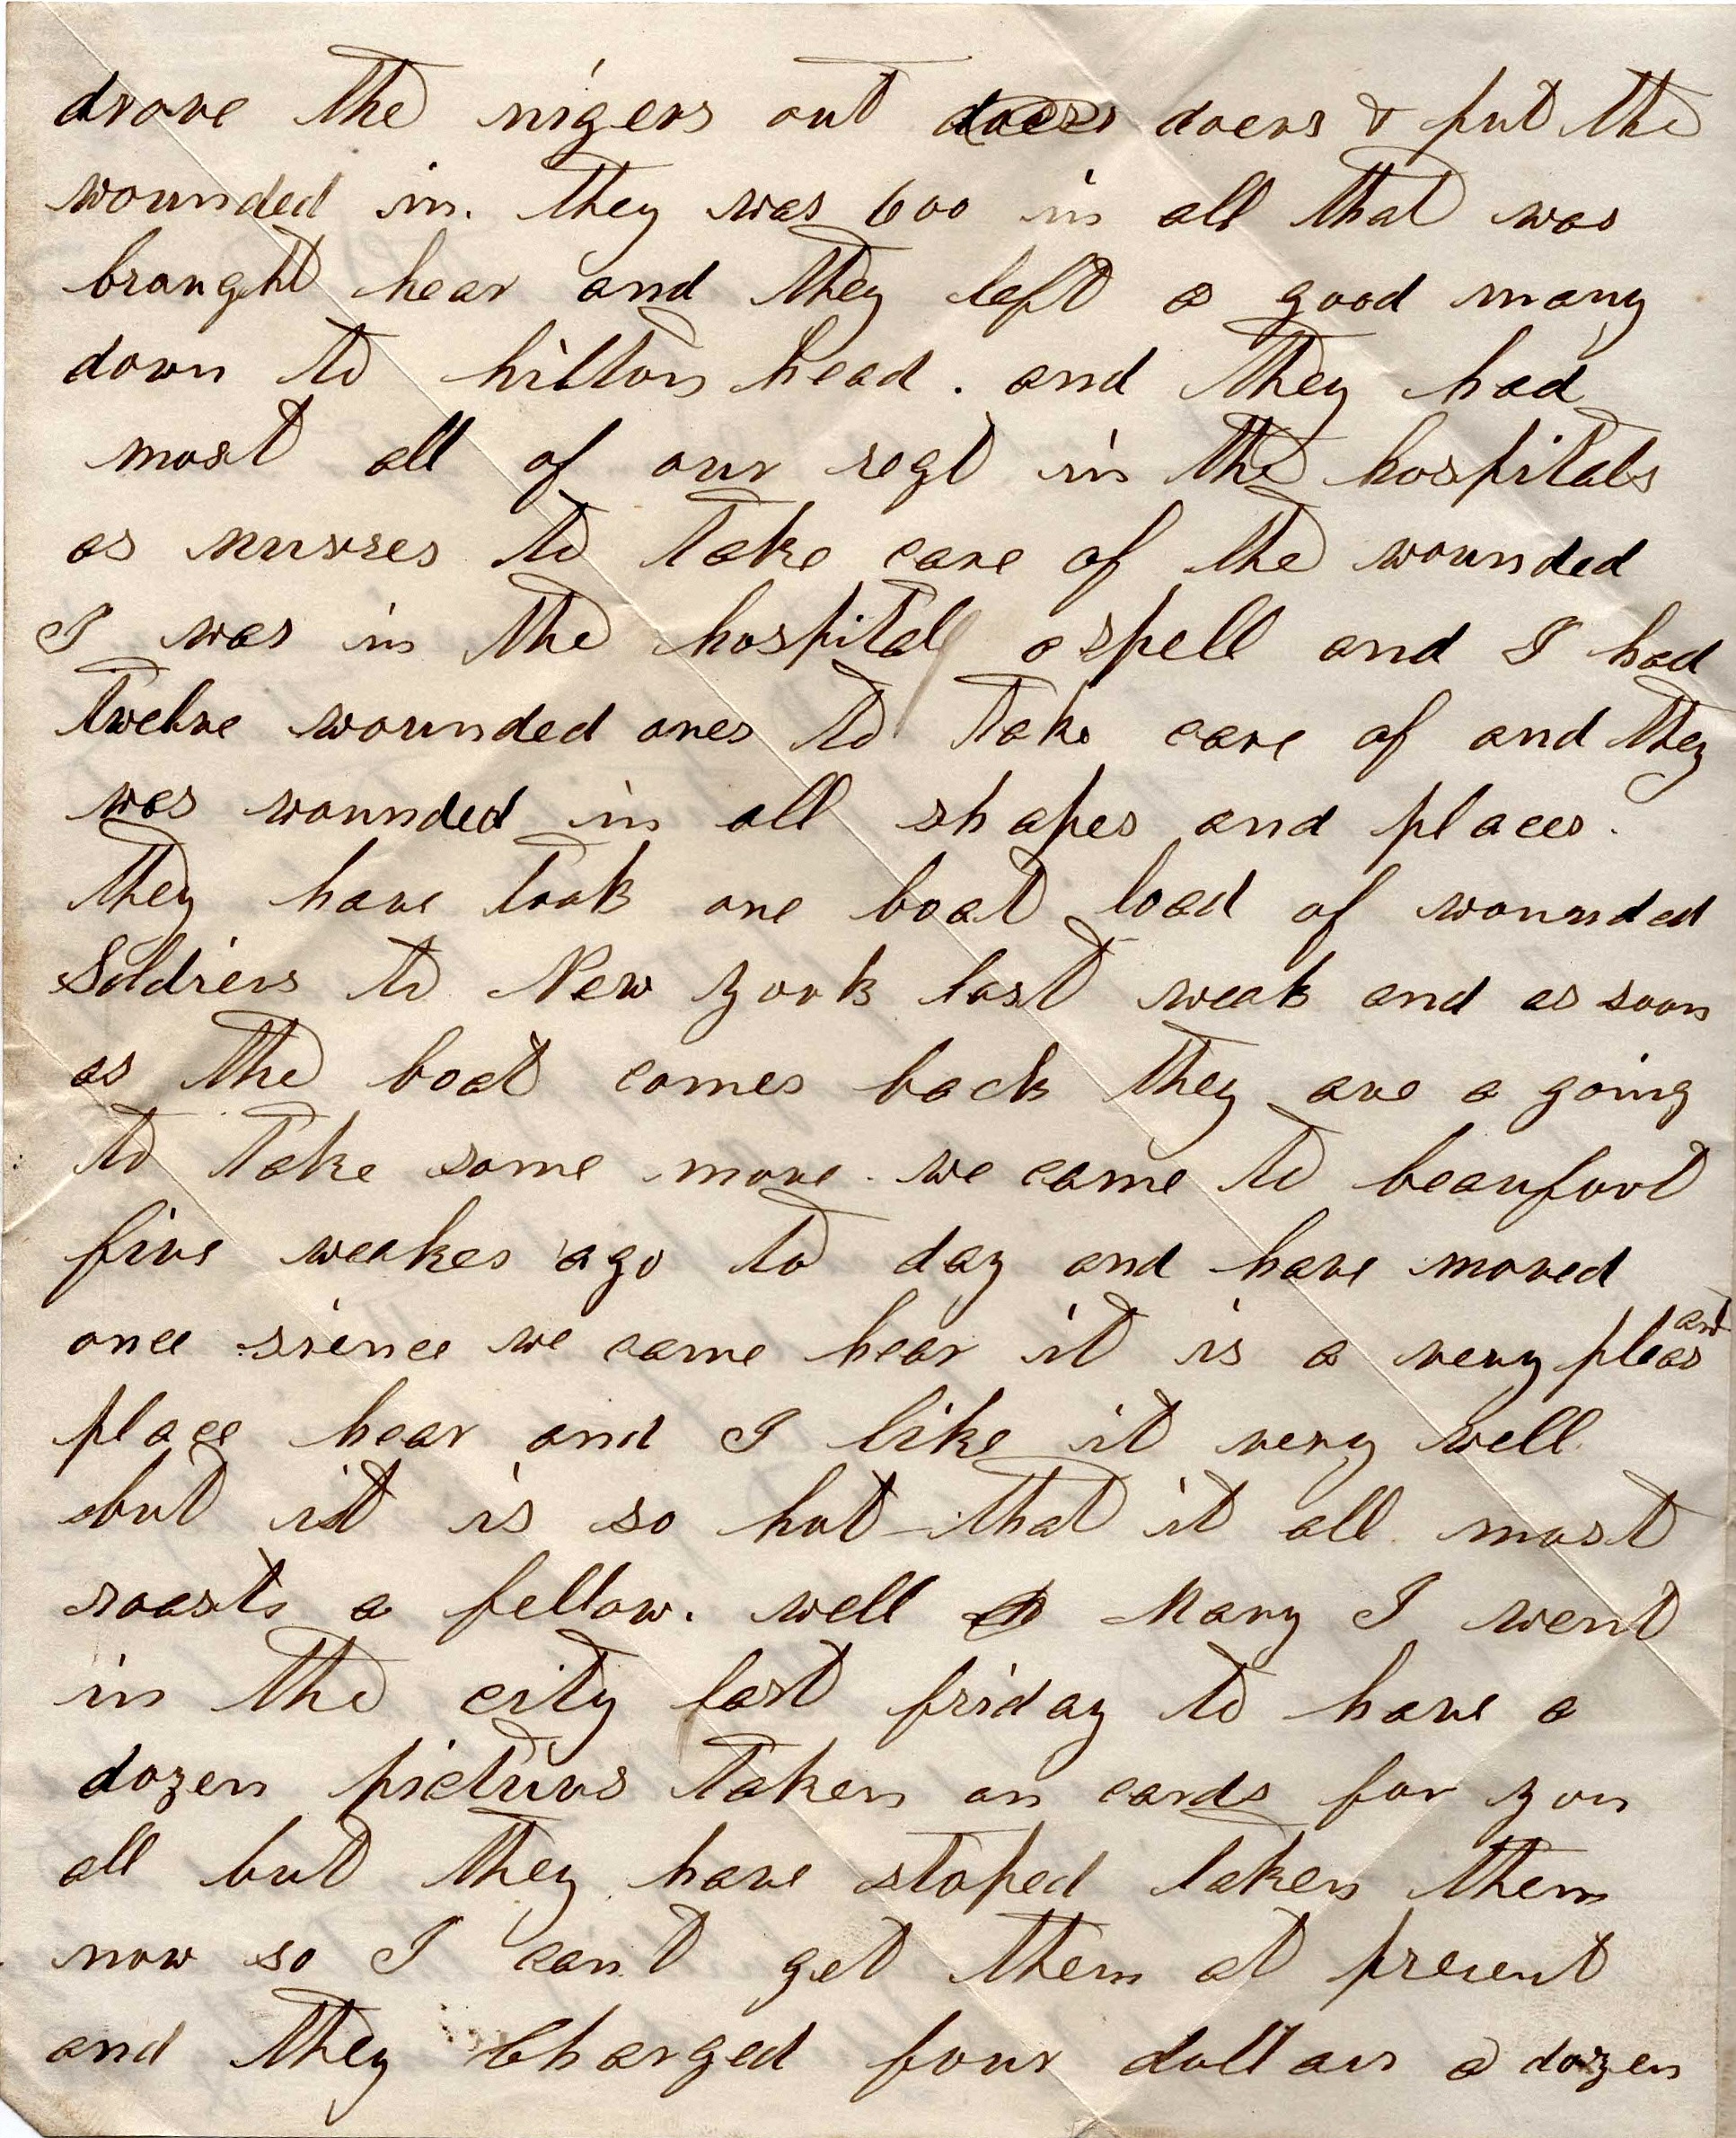 drove the nigers out doers doers & put the
wounded in. they was 600 in all that was
braught hear and they left a good many
down to hilton head. and they had
most all of our regt in the hospitals
as nurses to take care of the wounded
I was in the hospital a spell and I had
twelve wounded ones to take care of and they
was wounded in all shapes and places.
they have took one boat load of wounded
Soldiers to New York last weak and as soon
as the boat comes back they are a going
to take some more. we came to beaufort
five weakes ago to day and have moved
once sience we came hear it is a very pleasant
place hear and I like it very well
but it is so hot that it all most
roasts a fellow. well Mary I went
in the city last friday to have a
dozen picturs taken on cards for you
all but they have stoped taken them
now so I can't get them at present
and they Charged four dollars a dozen